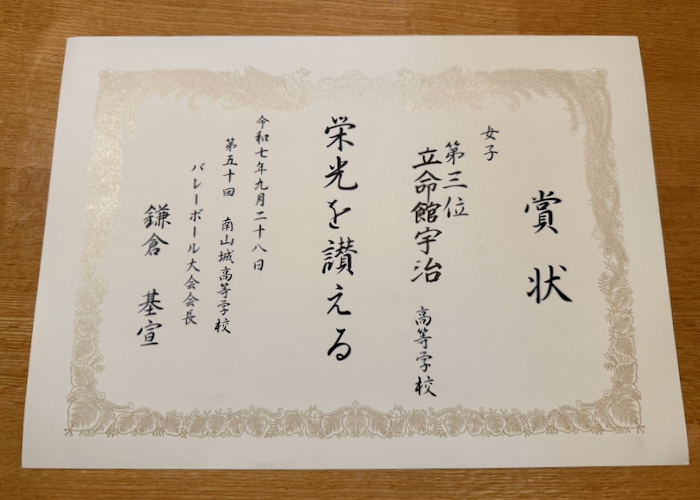 賞状
女子
第三位
立命館宇治 高等学校
栄光を讃える
令和七年九月二十八日
第五十回 南山城高等学校
バレーボール大会会長
鎌倉 基宣